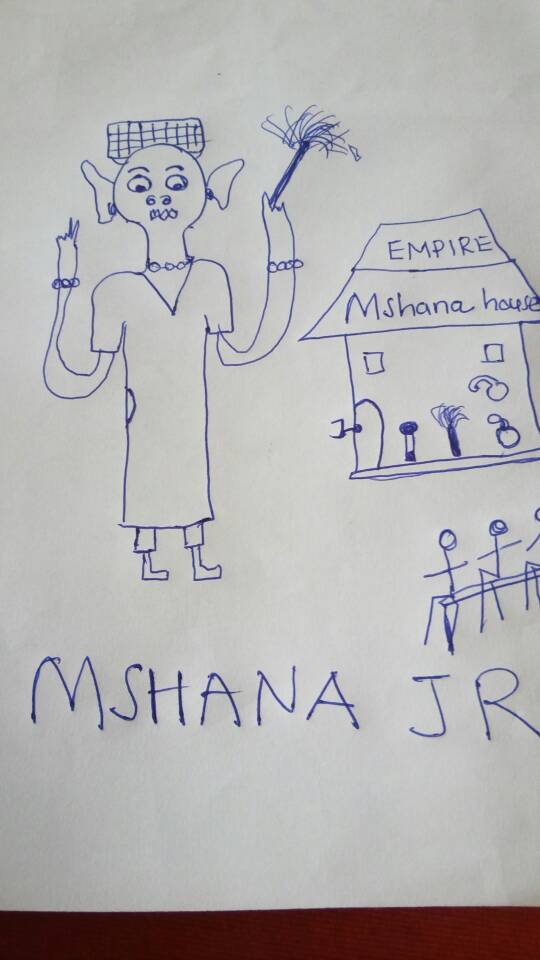 EMPIRE
Mshana house
MSHANA JR